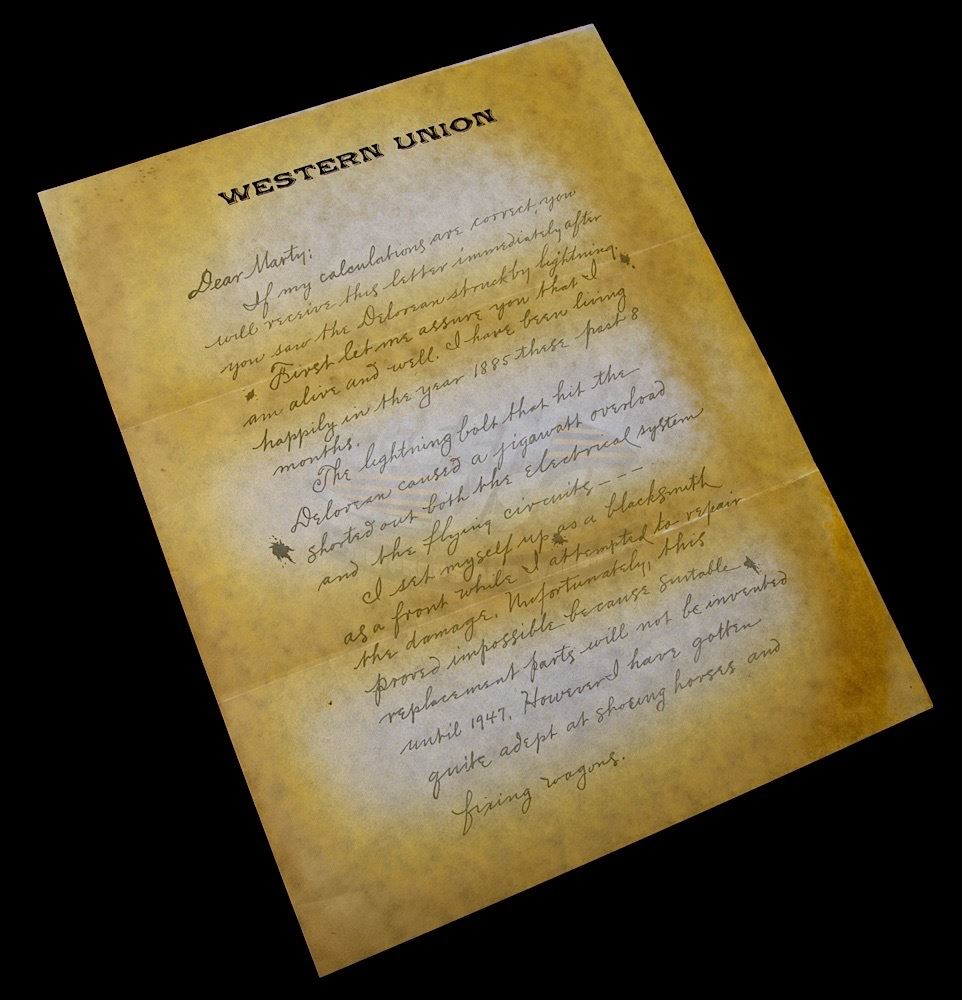 WESTERN UNION
Dear Marty:
If my calculations are correct, you
will receive this letter immediately after
you saw the Delorean struck by lightning.
First let me assure you that I
am alive and well. I have been living
happily in the year 1885 these past 8
months.
The lightning bolt that hit the
Delorean caused a jigawatt overload
shorted out both the Electrical system
and the flying circuits---
I set myself up as a blacksmith
as a front while I attempted to repair
the damage. Unfortunately, this
proved impossible because suitable
replacement parts will not be invented
until 1947. However I have gotten
quite adept at shoeing horses and
fixing wagons.